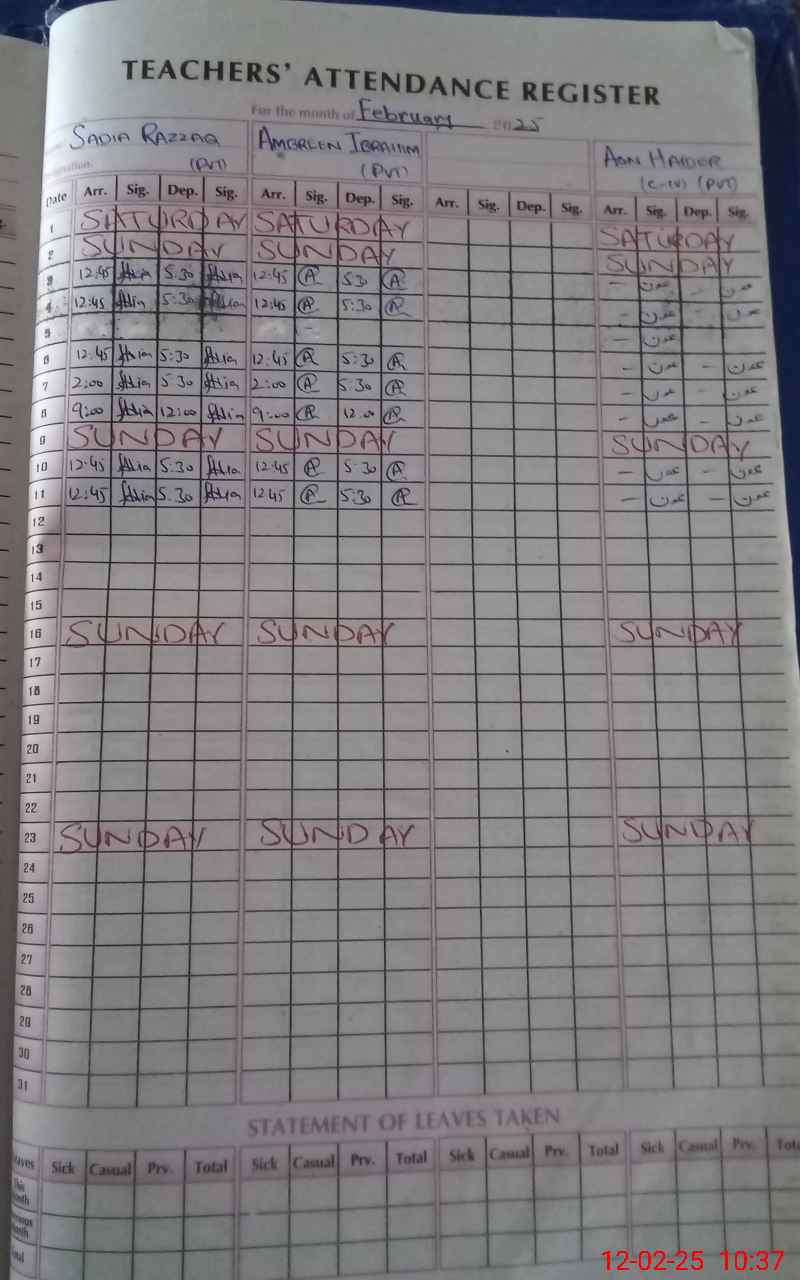 TEACHERS' ATTENDANCE REGISTER
For the month of February 2025
SADIA RAZZAQ AMBREEN IBRAHIM AON HAIDER
(PVT) (PVT) (C-IV) (PVT)
Date Arr. Sig. Dep. Sig. Arr. Sig. Dep. Sig. Arr. Sig. Dep. Sig. Arr. Sig. Dep. Sig.
1 SATURDAY SATURDAY SATURDAY
2 SUNDAY SUNDAY SUNDAY
3 12:45 5:30 12:45 5:30 - عون - عون
4 12:45 5:30 12:45 5:30 - عون - عون
5 - عون
6 12:45 5:30 12:45 5:30 - عون - عون
7 2:00 5:30 2:00 5:30 - عون - عون
8 9:00 12:00 9:00 12:00 - عون - عون
9 SUNDAY SUNDAY SUNDAY
10 12:45 5:30 12:45 5:30 - عون - عون
11 12:45 5:30 12:45 5:30 - عون - عون
12
13
14
15
16 SUNDAY SUNDAY SUNDAY
17
18
19
20
21
22
23 SUNDAY SUNDAY SUNDAY
24
25
26
27
28
29
30
31
STATEMENT OF LEAVES TAKEN
Sick Casual Prv. Total Sick Casual Prv. Total Sick Casual Prv. Total Sick Casual Prv.
12-02-25 10:37